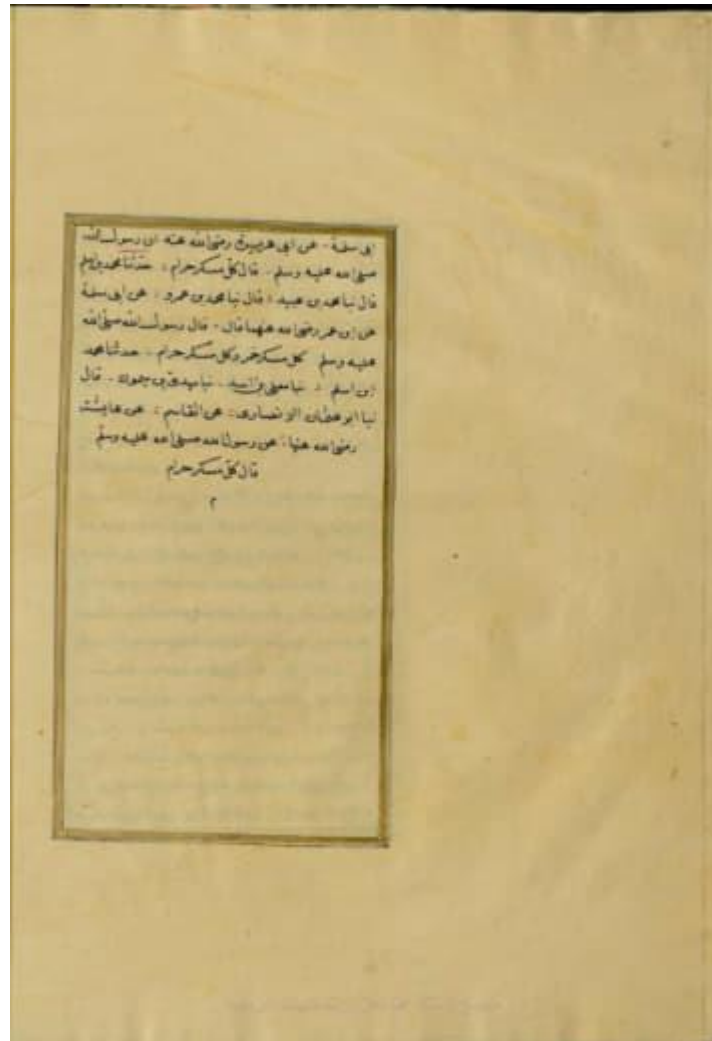 ابى سلمة عن ابى هريرة رضى الله عنه ان رسول الله
صلى الله عليه وسلم قال كل مسكر حرام حدثنا محمد بن اسلم
قال نبا محمد بن عبيد قال نبا محمد بن عمرو عن ابى سلمة
عن ابن عمر رضى الله عنهما قال قال رسول الله صلى الله
عليه وسلم كل مسكر خمر وكل مسكر حرام حدثنا محمد
ابن اسلم نبا معلى بن اسد نبا مهدى بن ميمون قال
نبا ابو عثمان الانصارى عن القاسم عن عايشة
رضى الله عنها عن رسول الله صلى الله عليه وسلم
قال كل مسكر حرام
م